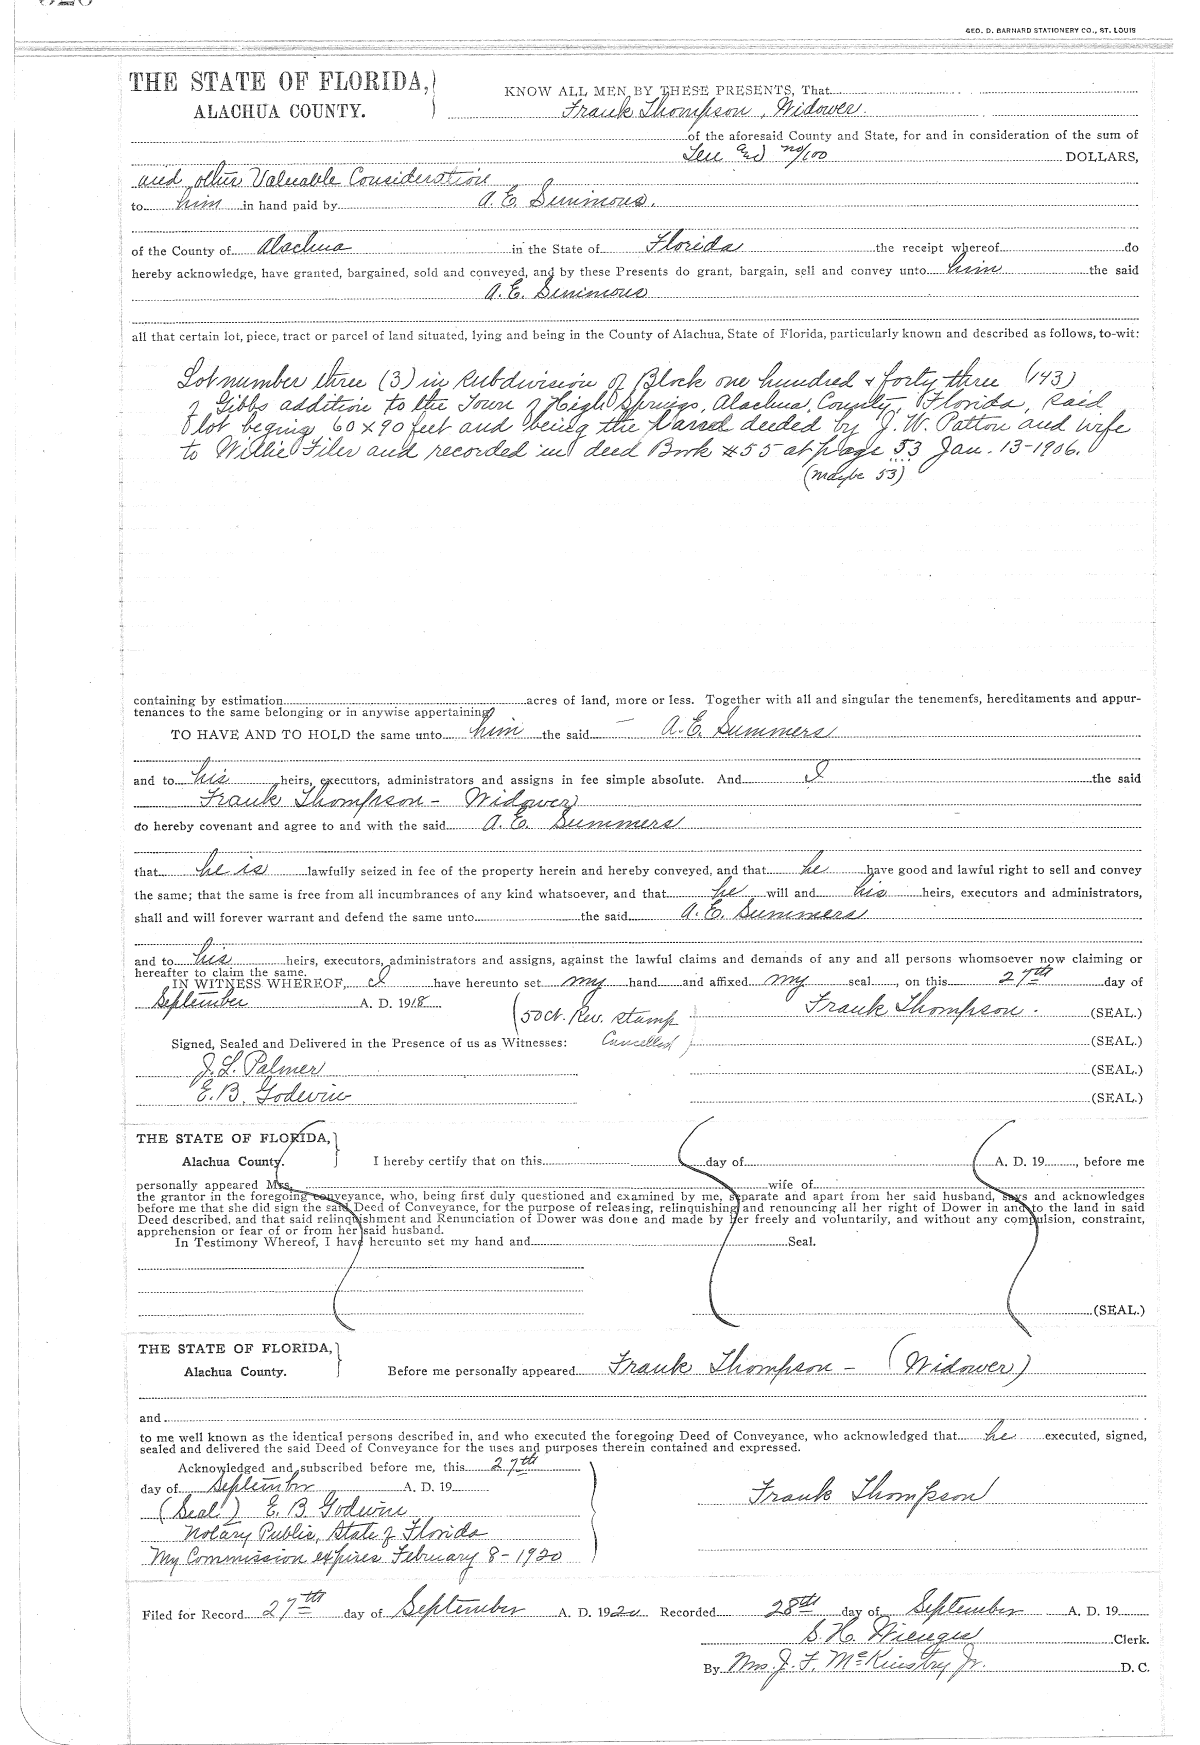 GEO. D. BARNARD STATIONERY CO., ST. LOUIS
THE STATE OF FLORIDA,
ALACHUA COUNTY.
KNOW ALL MEN BY THESE PRESENTS, That
Frank Thompson, Widower.
of the aforesaid County and State, for and in consideration of the sum of
Ten and no/100 DOLLARS,
and other Valuable Consideration
to him in hand paid by A. E. Simmons.
of the County of Alachua in the State of Florida the receipt whereof do
hereby acknowledge, have granted, bargained, sold and conveyed, and by these Presents do grant, bargain, sell and convey unto him the said
A. E. Simmons
all that certain lot, piece, tract or parcel of land situated, lying and being in the County of Alachua, State of Florida, particularly known and described as follows, to-wit:
Lot number three (3) in Subdivision of Block one hundred & forty three (143)
of Gibbs addition to the Town of High Springs, Alachua, County, Florida, said
lot beging 60 x 90 feet and being the parcel deeded by J. W. Patton and wife
to Willie Files and recorded in deed Book #55 at page 53 Jan. 13-1906.
(maybe 53)
containing by estimation acres of land, more or less. Together with all and singular the tenements, hereditaments and appur-
tenances to the same belonging or in anywise appertaining
TO HAVE AND TO HOLD the same unto him the said - A. E. Summers
and to his heirs, executors, administrators and assigns in fee simple absolute. And I the said
Frank Thompson - Widower
do hereby covenant and agree to and with the said A. E. Summers
that he is lawfully seized in fee of the property herein and hereby conveyed, and that he have good and lawful right to sell and convey
the same; that the same is free from all incumbrances of any kind whatsoever, and that he will and his heirs, executors and administrators,
shall and will forever warrant and defend the same unto the said A. E. Summers
and to his heirs, executors, administrators and assigns, against the lawful claims and demands of any and all persons whomsoever now claiming or
hereafter to claim the same.
IN WITNESS WHEREOF, I have hereunto set my hand and affixed my seal, on this 27th day of
September A. D. 1918
(50 Ct. Rev. Stamp
Cancelled)
Frank Thompson. (SEAL.)
Signed, Sealed and Delivered in the Presence of us as Witnesses: (SEAL.)
J. L. Palmer (SEAL.)
E. B. Godwin (SEAL.)
THE STATE OF FLORIDA,
Alachua County. I hereby certify that on this day of A. D. 19 , before me
personally appeared Mrs. wife of
the grantor in the foregoing conveyance, who, being first duly questioned and examined by me, separate and apart from her said husband, says and acknowledges
before me that she did sign the said Deed of Conveyance, for the purpose of releasing, relinquishing and renouncing all her right of Dower in and to the land in said
Deed described, and that said relinquishment and Renunciation of Dower was done and made by her freely and voluntarily, and without any compulsion, constraint,
apprehension or fear of or from her said husband.
In Testimony Whereof, I have hereunto set my hand and Seal.
(SEAL.)
THE STATE OF FLORIDA,
Alachua County. Before me personally appeared Frank Thompson - (Widower)
and
to me well known as the identical persons described in, and who executed the foregoing Deed of Conveyance, who acknowledged that he executed, signed,
sealed and delivered the said Deed of Conveyance for the uses and purposes therein contained and expressed.
Acknowledged and subscribed before me, this 27th
day of September A. D. 19
Frank Thompson
(Seal) E. B. Godwin
Notary Public, State of Florida
My Commission expires February 8-1920
Filed for Record 27th day of September A. D. 1920 Recorded 28th day of September A. D. 19
S. H. Wienges Clerk.
By Mrs. J. F. McKinstry Jr. D. C.